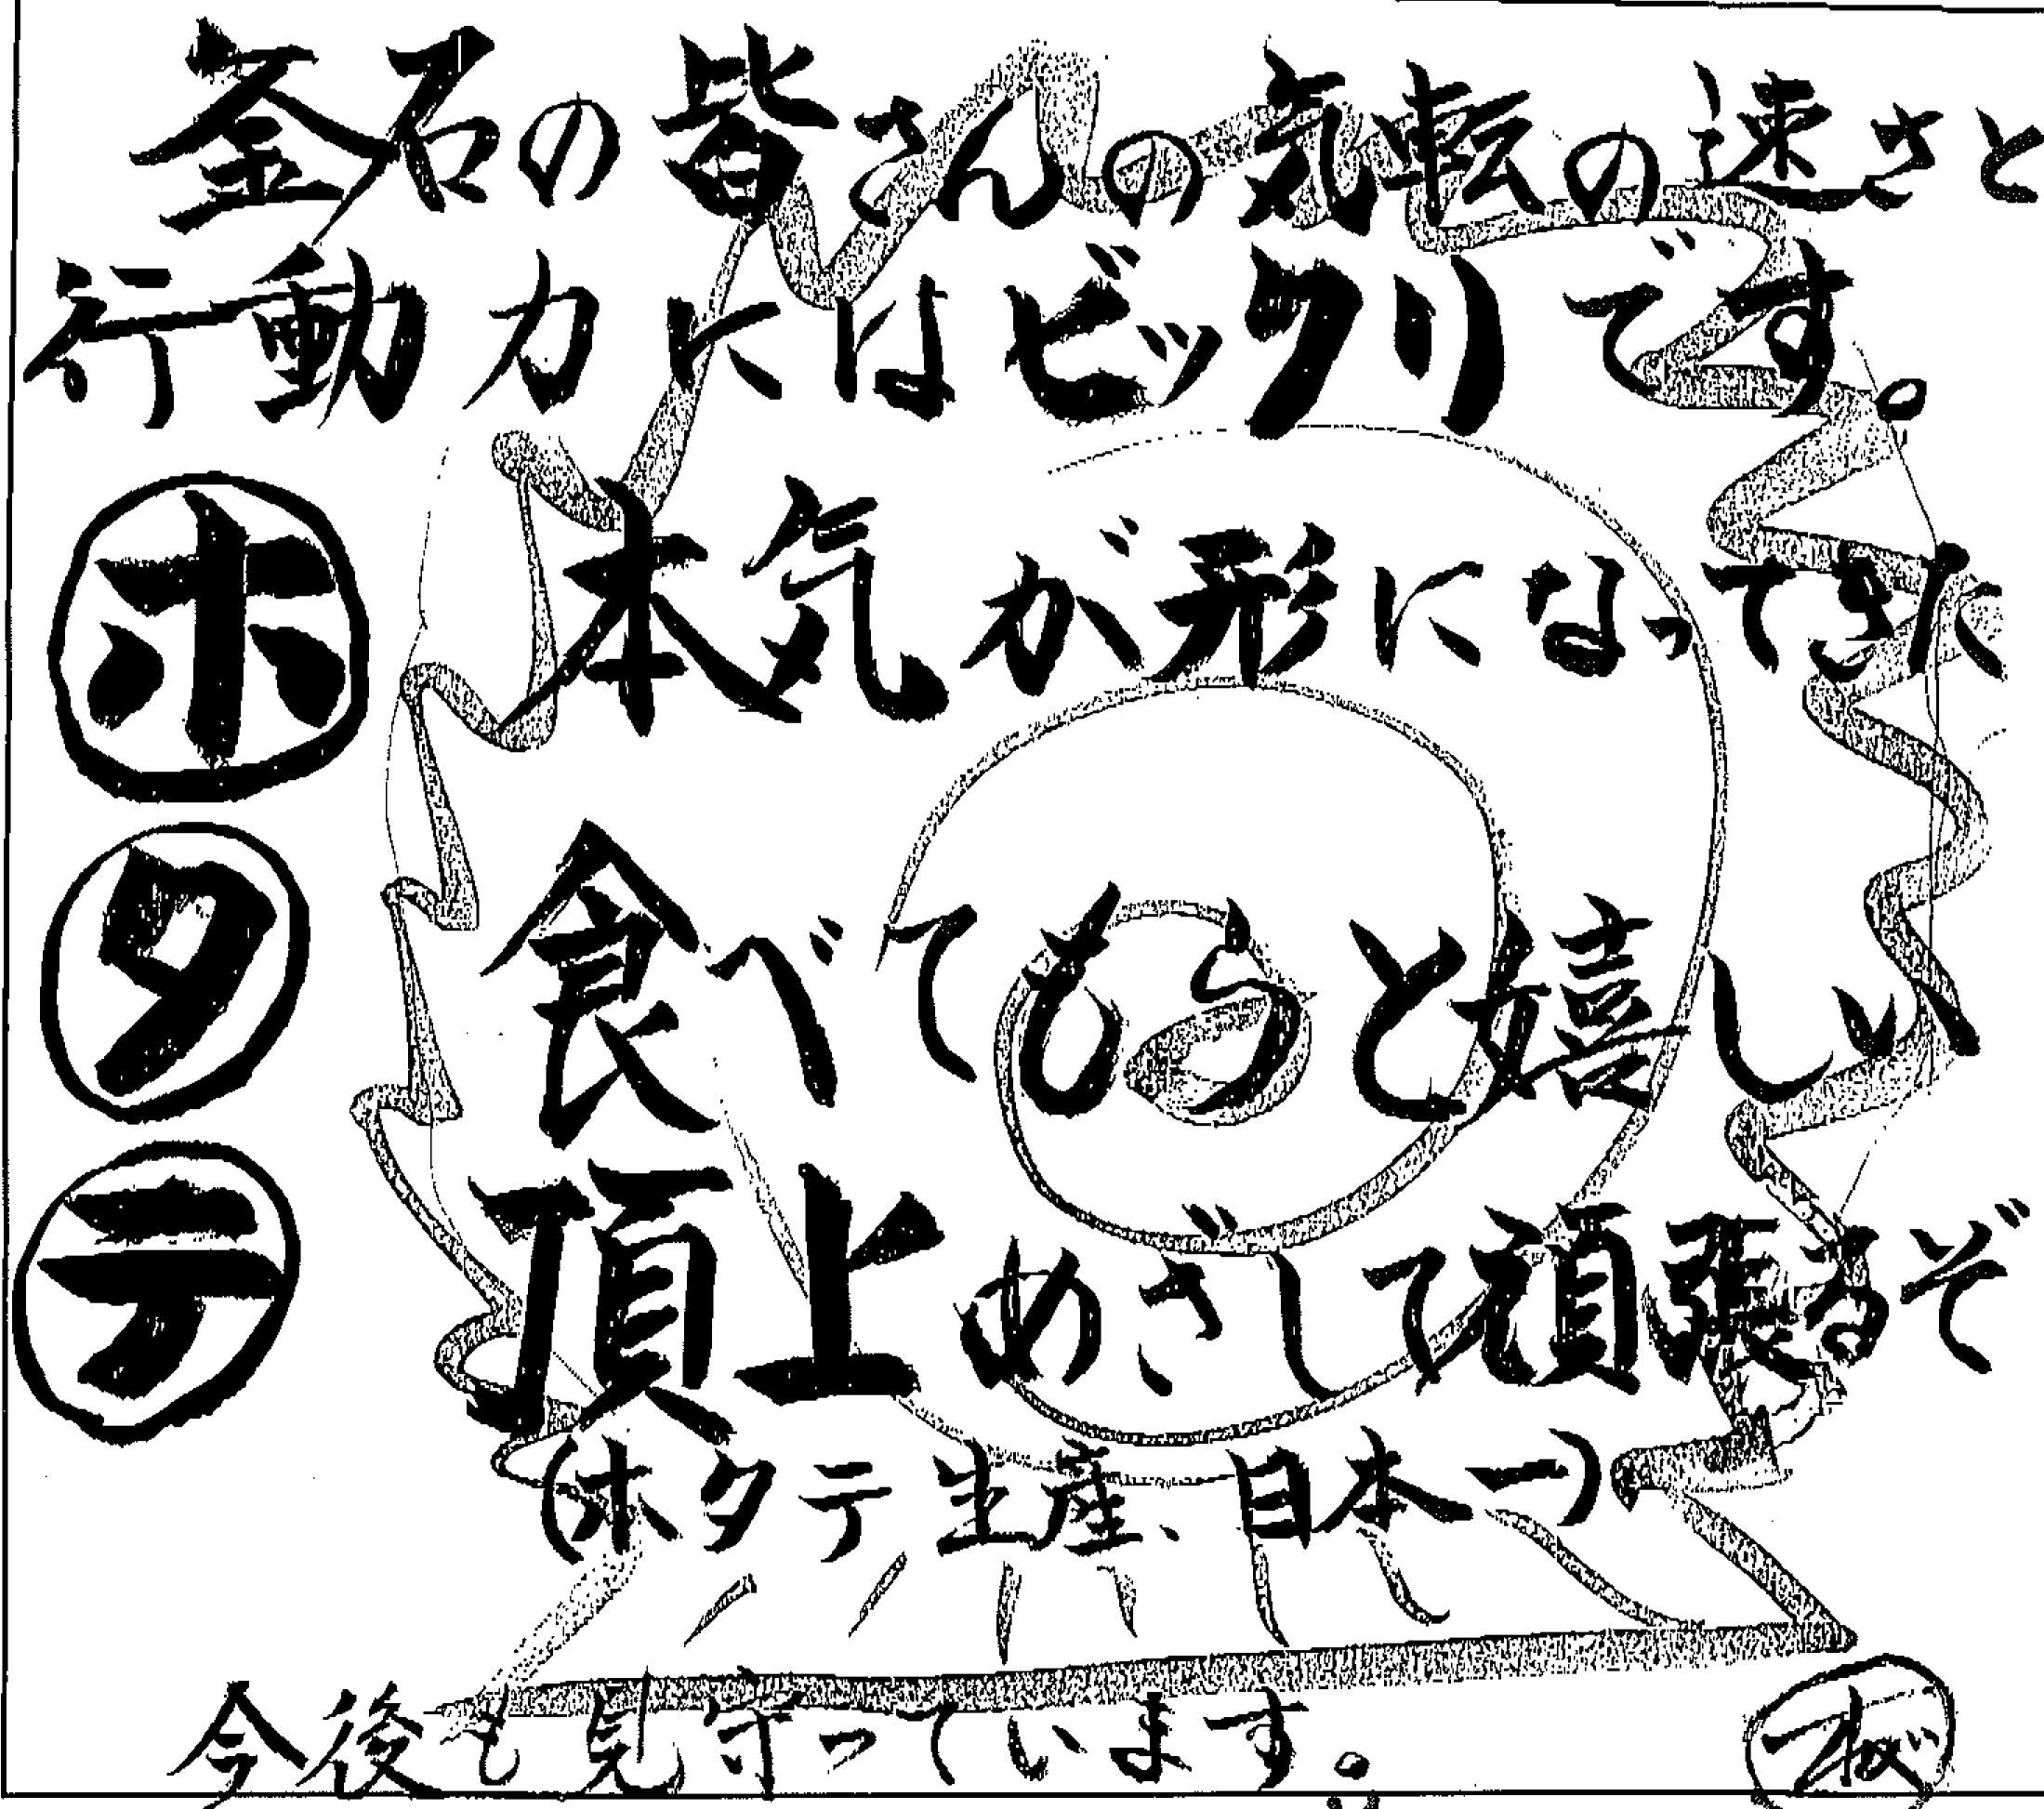 釜石の皆さんの気転の速さと
行動力にはビックリです。
ホ 本気が形になってきた
タ 食べてもらと嬉しい
テ 頂上めざして頑張るぞ
(ホタテ生産、日本一)
今後も見守っています。